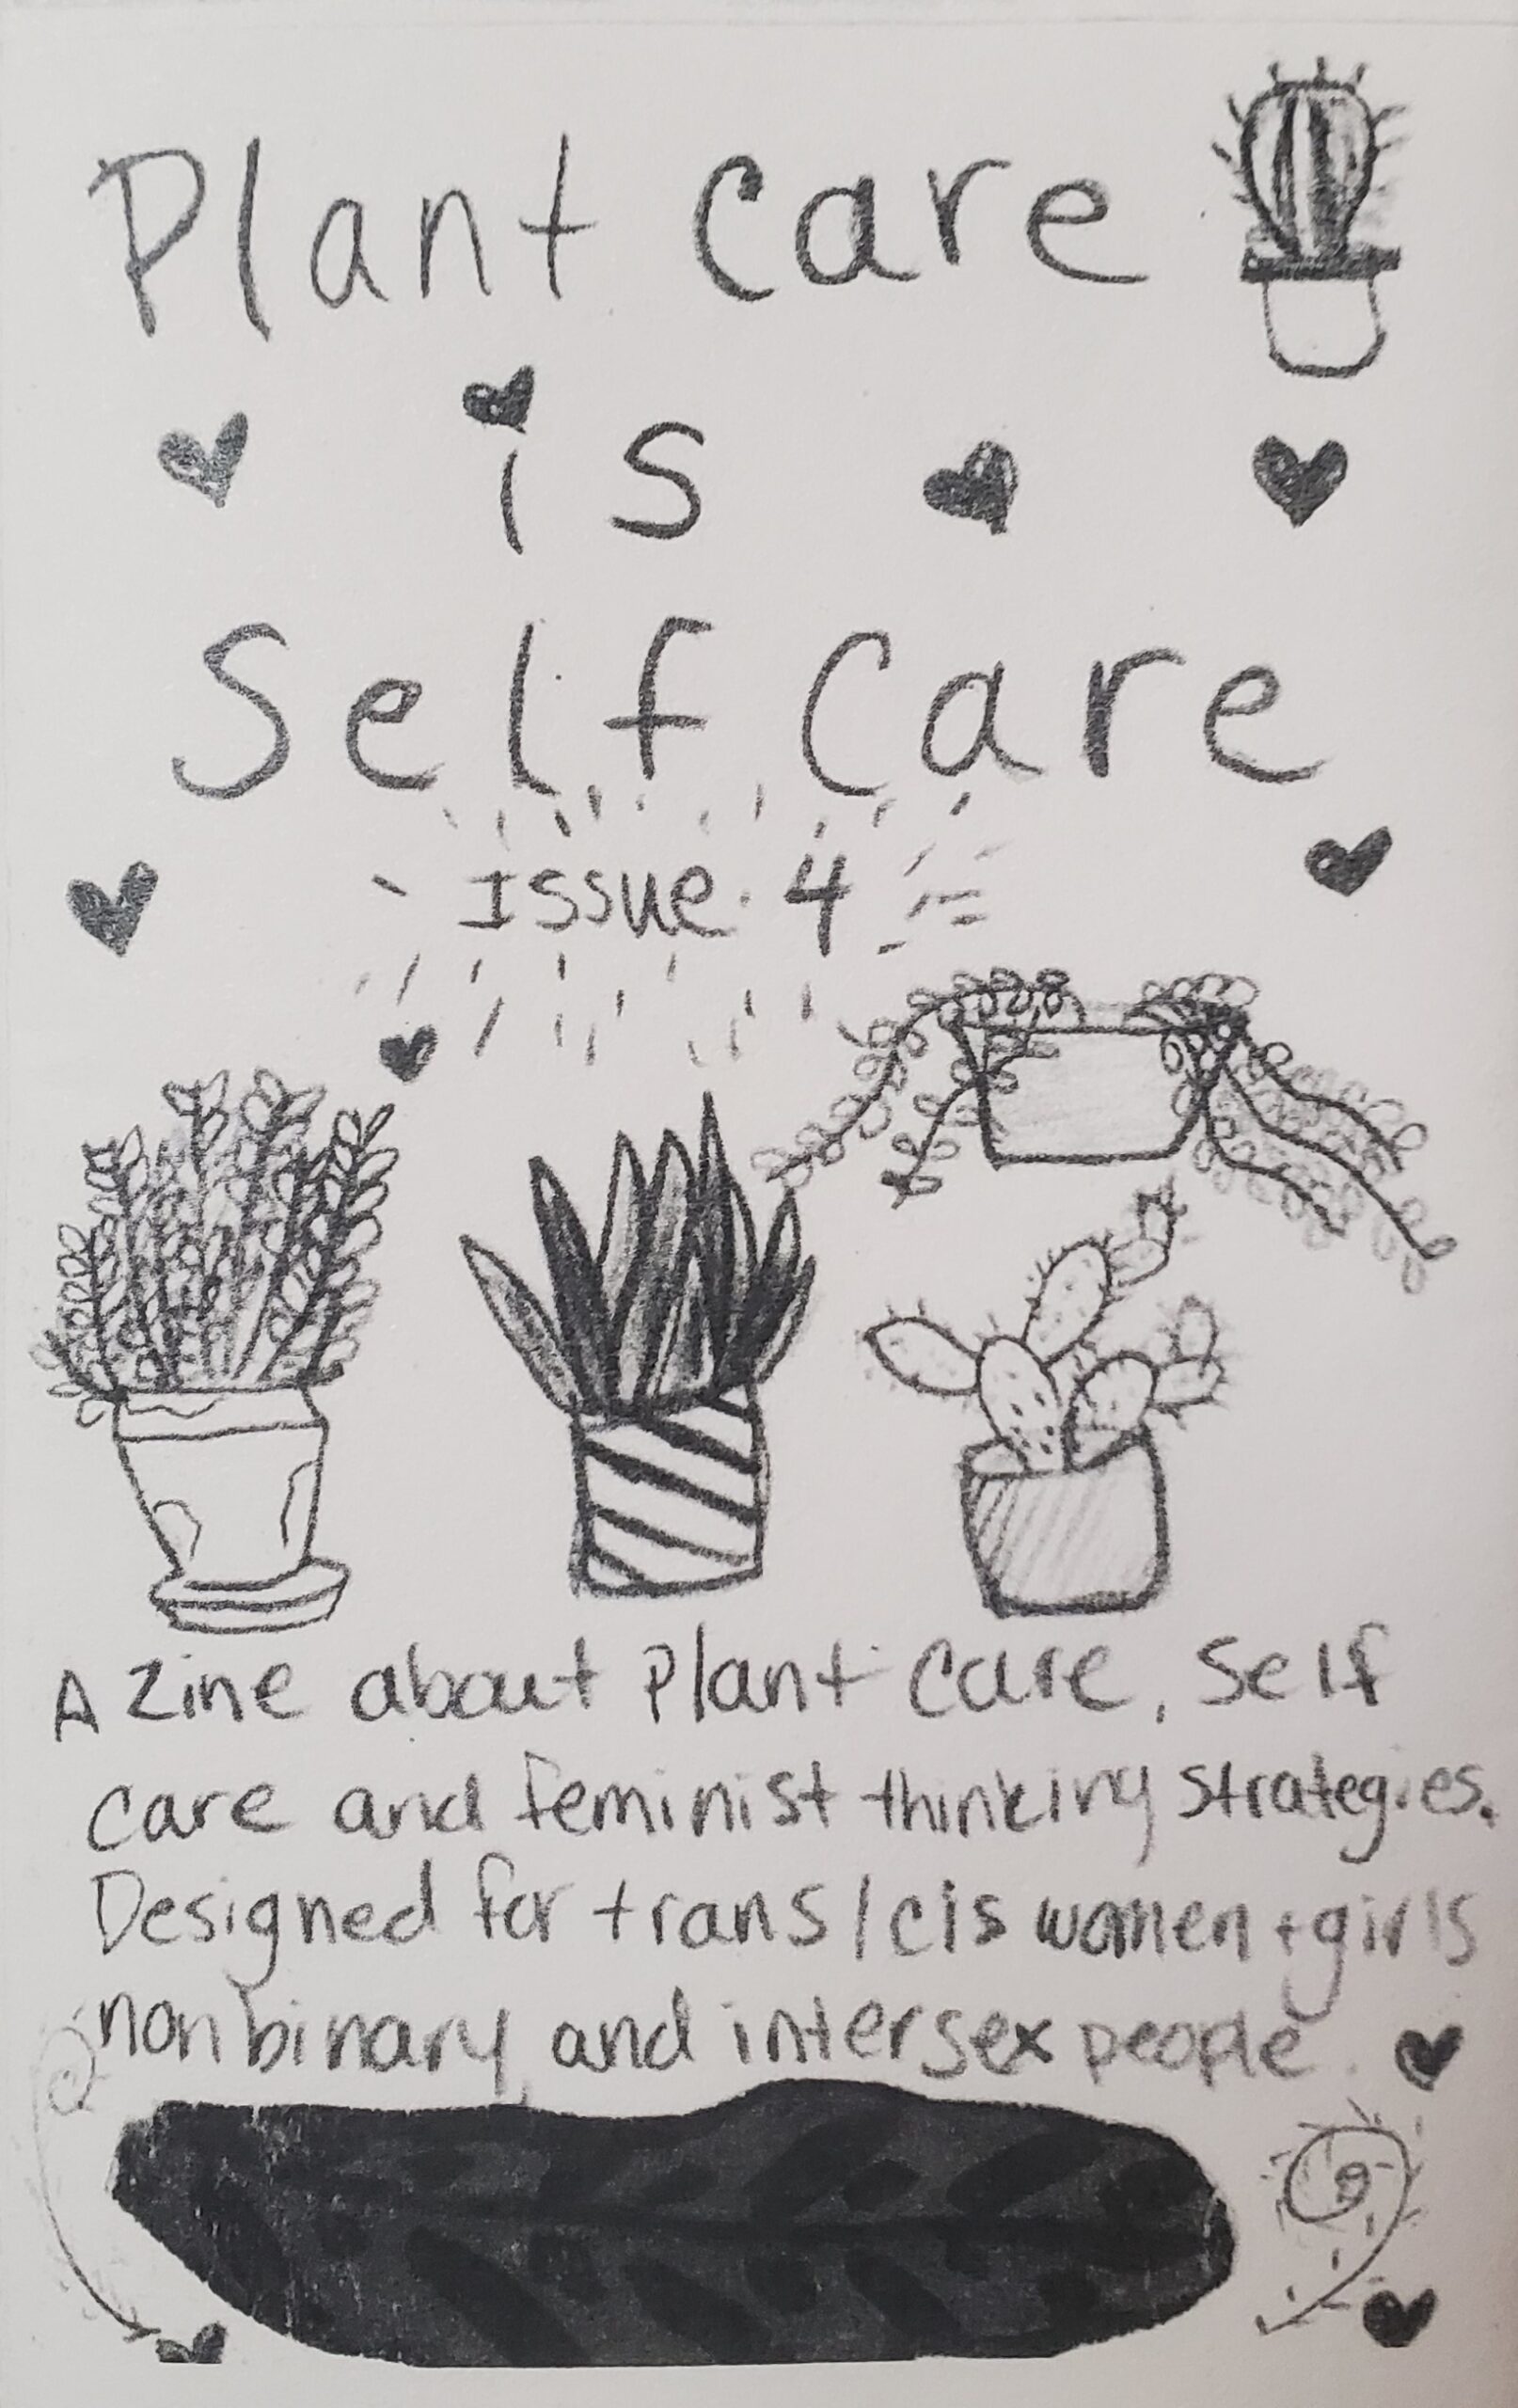 Plant Care
is
Self Care
Issue 4
A Zine about Plant Care, Self
care and feminist thinking strategies.
Designed for trans/cis women + girls
nonbinary, and intersex people.